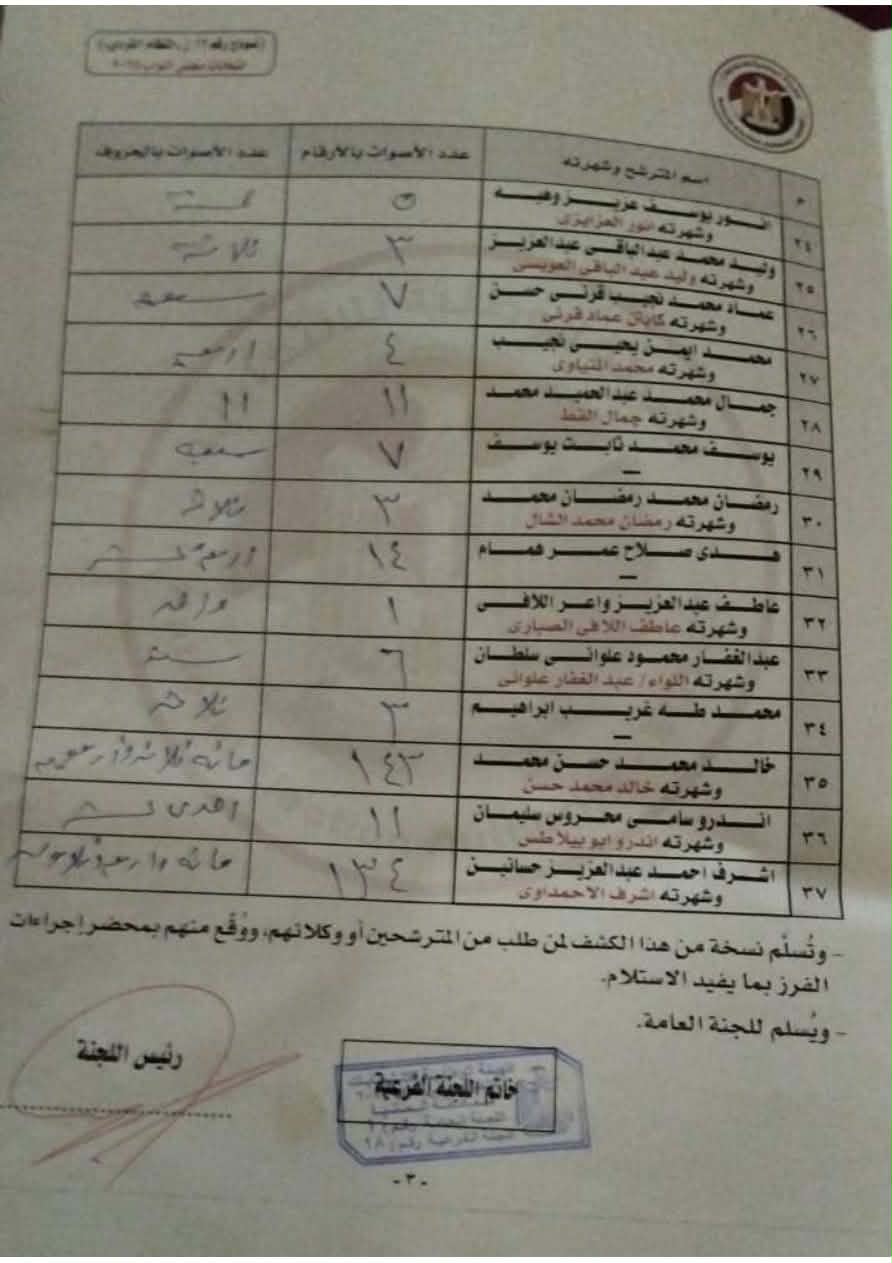 (نموذج رقم ١٢ ن. النظام الفردى)
انتخابات مجلس النواب
م
اسم المترشح وشهرته
عدد الأصوات بالأرقام
عدد الأصوات بالحروف
٢٤
انور يوسف عزيز وهبه
وشهرته انور العزايزى
٥
خمسة
٢٥
وليد محمد عبدالباقى عبدالعزيز
وشهرته وليد عبد الباقى العويسى
٣
ثلاثة
٢٦
عماد محمد نجيب قرنى حسن
وشهرته كابتن عماد قرنى
٧
سبعه
٢٧
محمد ايمن يحيى نجيب
وشهرته محمد المنياوى
٤
اربعة
٢٨
جمال محمد عبدالحميد محمد
وشهرته جمال القط
١١
١١
٢٩
يوسف محمد ثابت يوسف
—
٧
سبعه
٣٠
رمضان محمد رمضان محمد
وشهرته رمضان محمد الشال
٣
ثلاثه
٣١
هدى صلاح عمر همام
—
١٤
اربعة عشر
٣٢
عاطف عبدالعزيز واعر اللافى
وشهرته عاطف اللافى الصبارى
١
واحد
٣٣
عبدالغفار محمود علوانى سلطان
وشهرته اللواء/ عبد الغفار علوانى
٦
سته
٣٤
محمد طه غريب ابراهيم
—
٣
ثلاثه
٣٥
خالد محمد حسن محمد
وشهرته خالد محمد حسن
١٤٣
مائه ثلاثه واربعون
٣٦
اندرو سامى محروس سليمان
وشهرته اندرو ابو بيلاطس
١١
احدى عشر
٣٧
اشرف احمد عبدالعزيز حسانين
وشهرته اشرف الاحمداوى
١٣٤
مائه واربعه وثلاثون
- وتُسلَّم نسخة من هذا الكشف لمن طلب من المترشحين أو وكلائهم، ووُقِّع منهم بمحضر إجراءات
الفرز بما يفيد الاستلام.
- ويُسلم للجنة العامة.
رئيس اللجنة
خاتم اللجنة الفرعية
- ٣ -